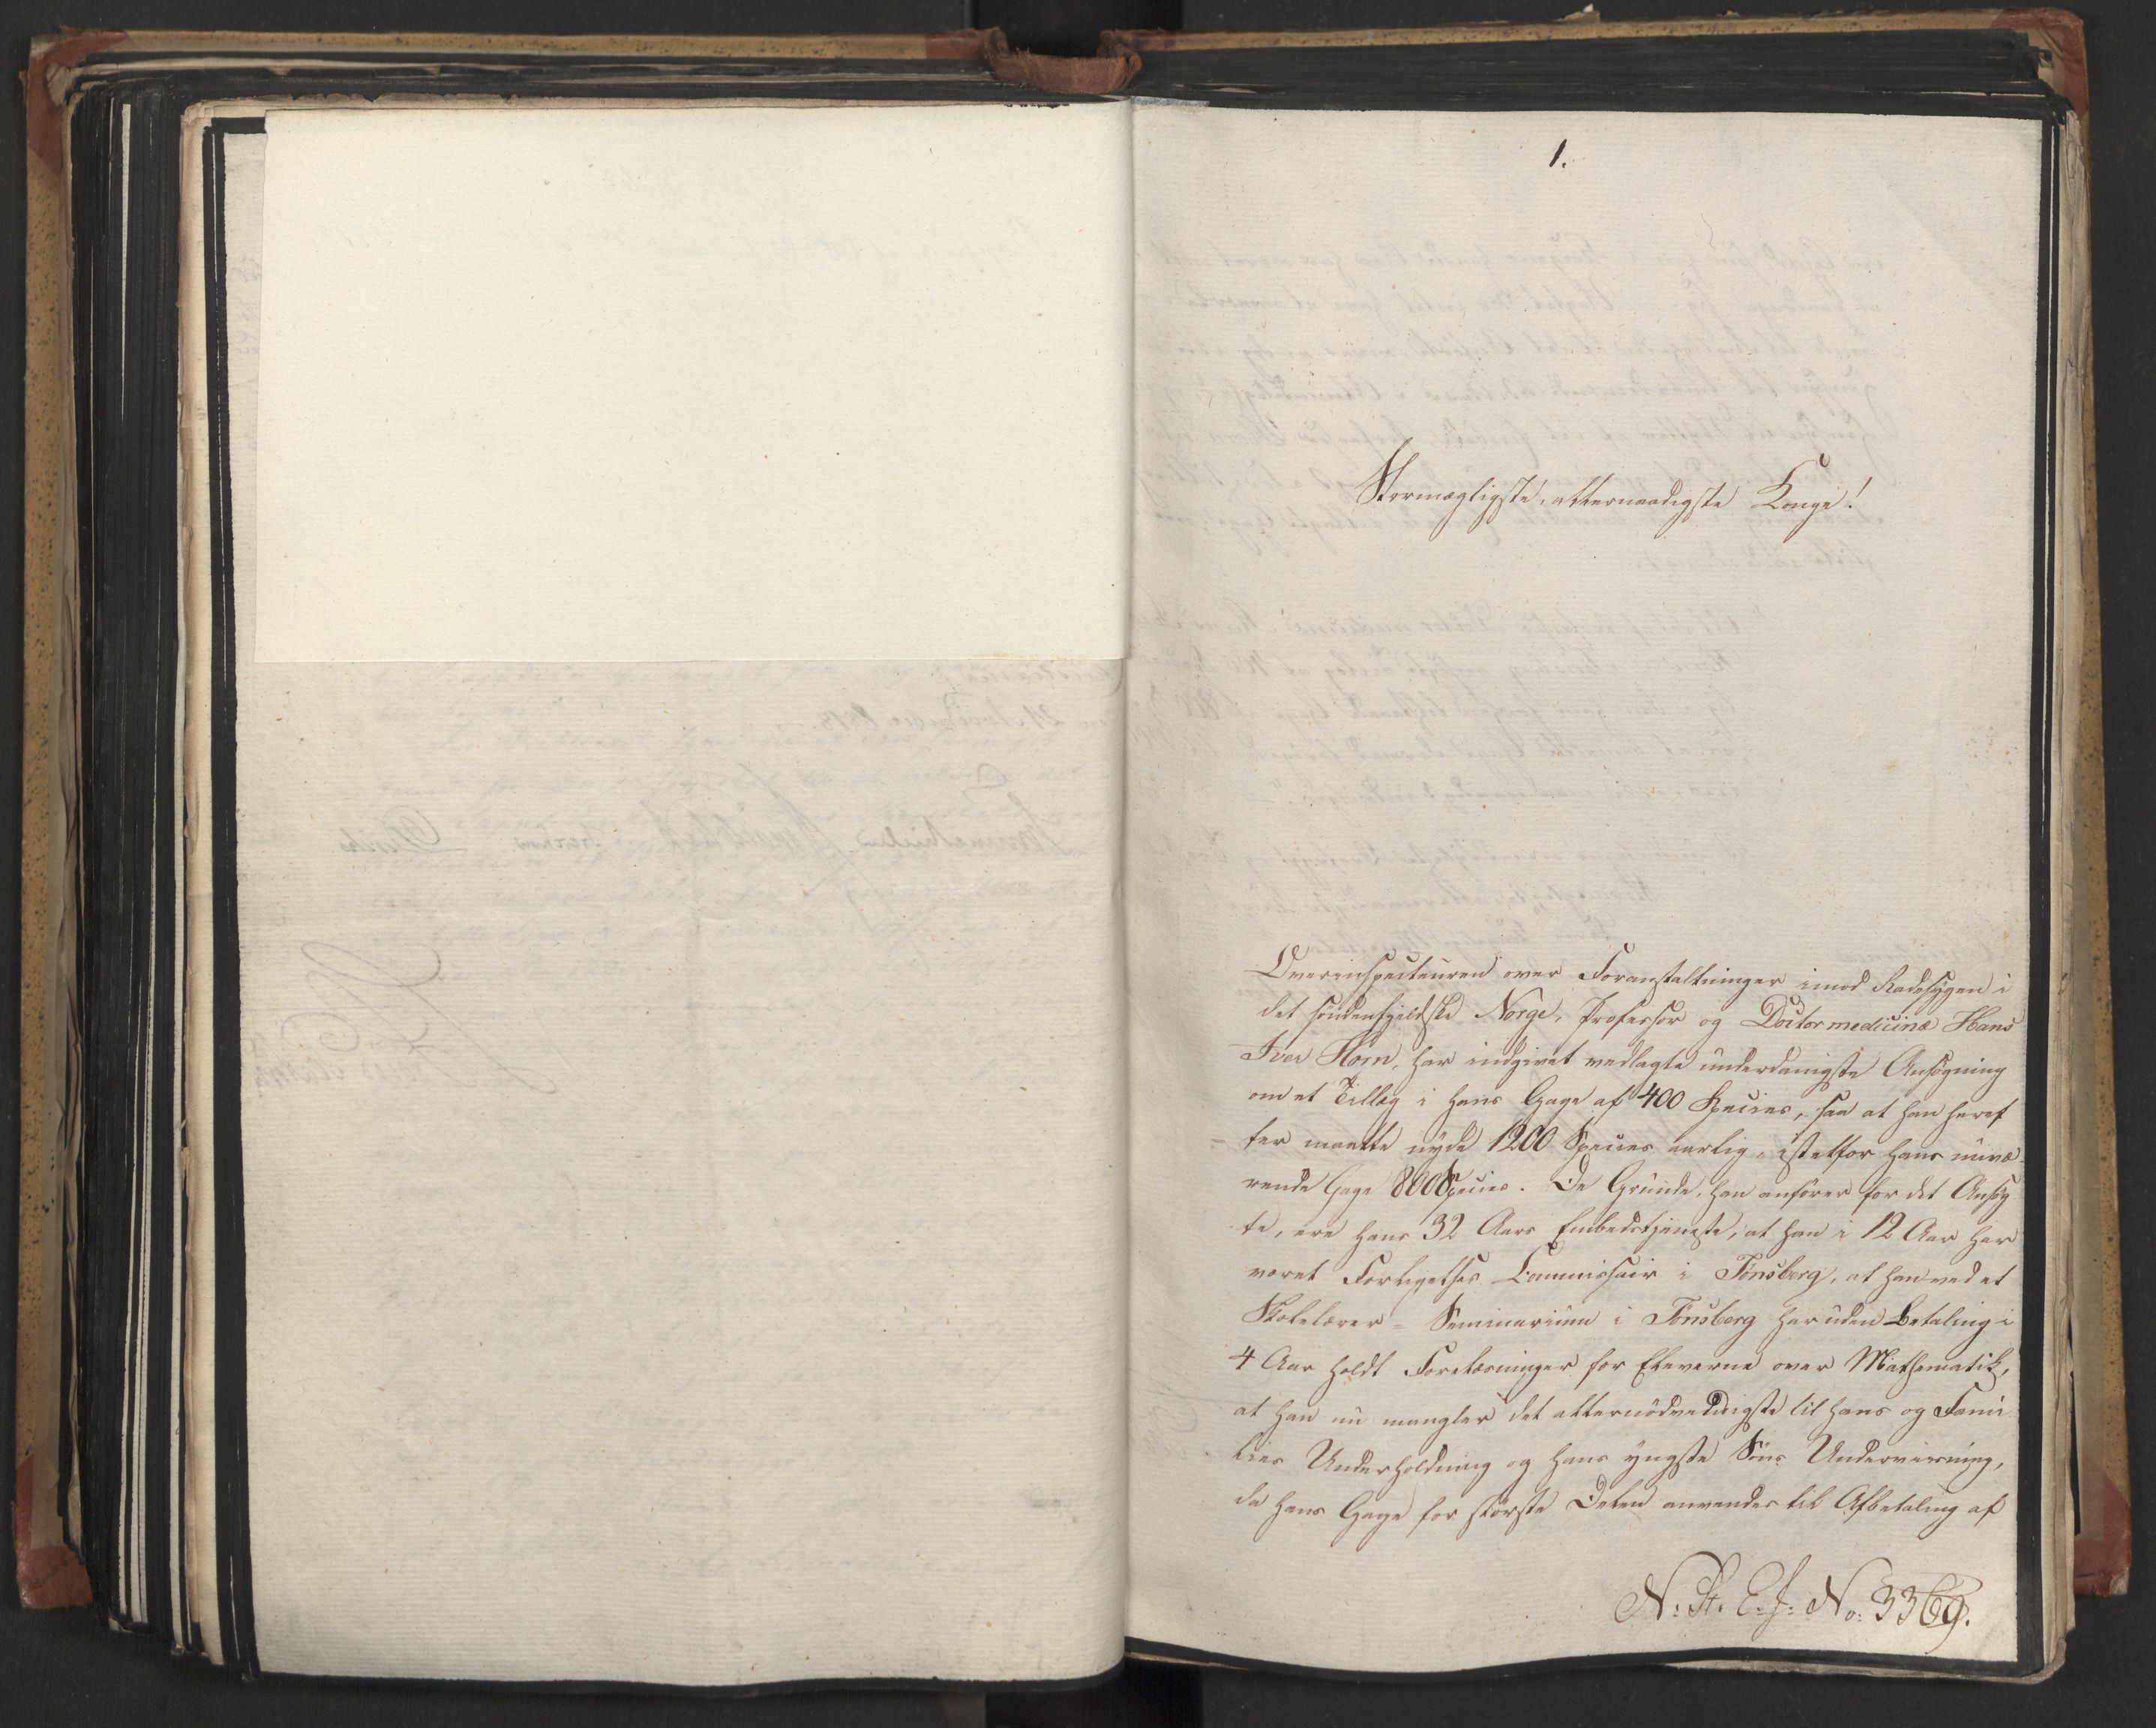 1.
Stormægtigste, allernaadigste Konge!
Overinspecteuren over Foranstaltninger imod Radesygen i
det söndenfjeldske Norge, Professor og Doctor medicinæ Hans
Iver Horn, har indgivet vedlagte underdanigste Ansögning
om et Tillæg i hans Gage af 400 Species, saa at han heref
ter maatte nyde 1200 Species aarlig, istetfor hans nuvæ-
rende Gage 800 Species. De Grunde, han anförer for det Ansög
te, ere hans 32 Aars Embedstjeneste, at han i 12 Aar har
været Forligelses Commissair i Tönsberg, at han ved et
Skolelærer-Seminarium i Tönsberg har uden Betaling i
4 Aar holdt Forelæsninger for Eleverne over Mathematik,
at han nu mangler det allernödvendigste til hans og Fami
lies Underholdning og hans yngste Söns Underviisning,
da hans Gage for störste Delen anvendes til Afbetaling af
N: St. E. J: No: 3369.